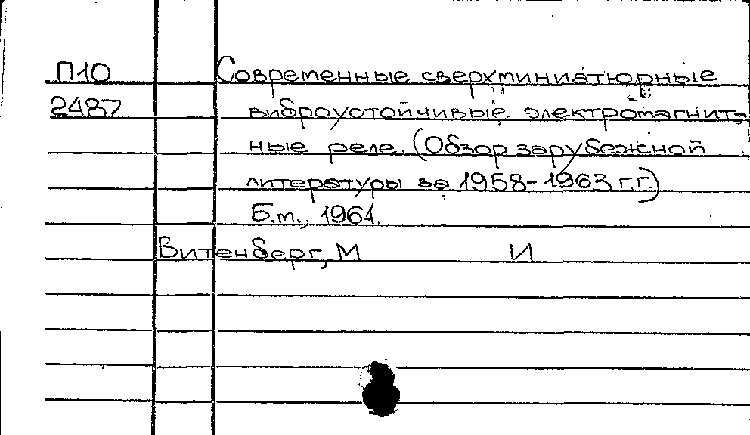 П10 Современные сверхминиатюрные
2487 виброустойчивые электромагнит-
ные реле. (Обзор зарубежной
литературы за 1958-1963 г.г.)
Б.м., 1961.
Витенберг, М И